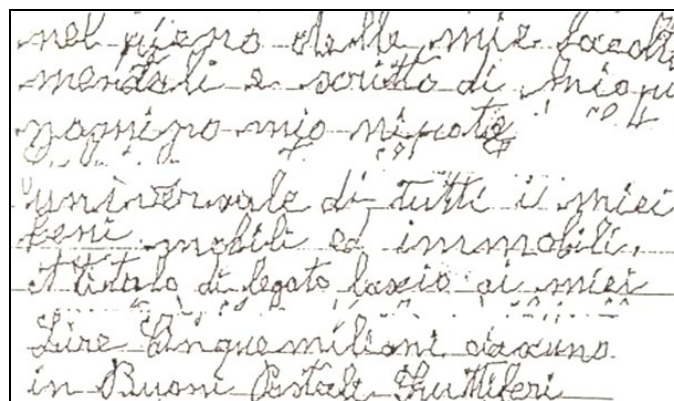 nel pieno delle mie facoltà
mentali e scritto di mio pu
nomino mio nipote
universale di tutti i miei
beni mobili ed immobili.
A titolo di legato lascio ai miei
Lire Cinquemilioni ciascuno
in Buoni Postali Fruttiferi